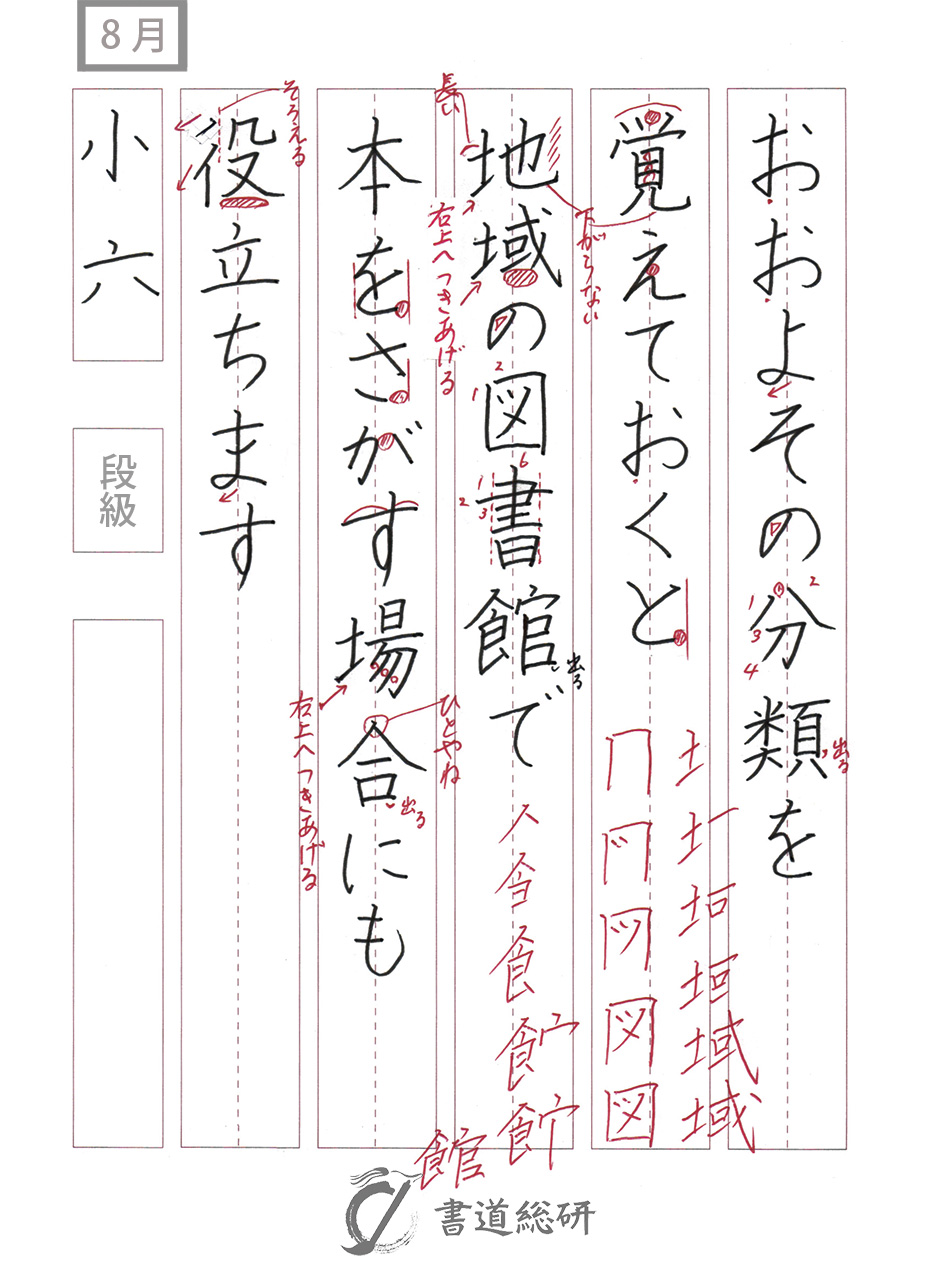 8月
おおよその分類を
覚えておくと
地域の図書館で
本をさがす場合にも
役立ちます
小六
段級
出る
下がらない
長い
右上へつきあげる
出る
ひとやね
出る
右上へつきあげる
そろえる
書道総研